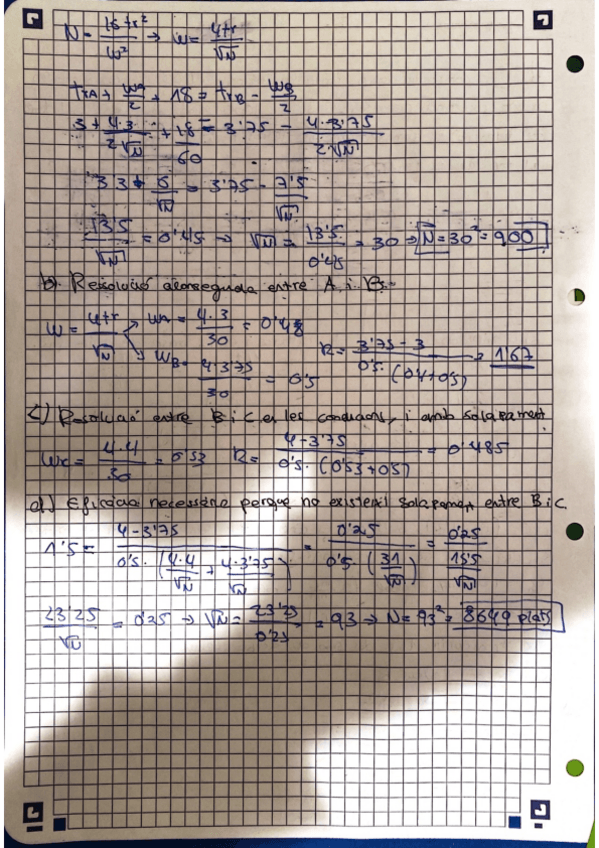 N = 16 tr² / w² → w = 4tr / √N
trA + wA/2 + 18 = trB - wB/2
3 + 4·3 / 2√N + 18/60 = 3'75 - 4·3'75 / 2√N
3'3 + 6/√N = 3'75 - 7'5/√N
13'5/√N = 0'45 → √N = 13'5/0'45 = 30 → N = 30² = 900
b) Resolució aconseguida entre A i B.
w = 4tr/√N → wA = 4·3/30 = 0'4
wB = 4·3'75/30 = 0'5 R = 3'75 - 3 / 0'5·(0'4+0'5) = 1'67
c) Resolució entre B i C en les condicions, i amb solapament
wc = 4·4/30 = 0'53 R = 4-3'75 / 0'5·(0'53+0'5) = 0'485
d) Eficàcia necessària perque no existeixi solapament entre B i C.
1'5 = 4-3'75 / 0'5·(4·4/√N + 4·3'75/√N) = 0'25 / 0'5·(31/√N) = 0'25 / 15'5/√N
23'25/√N = 0'25 → √N = 23'25/0'25 = 93 → N = 93² = 8649 plats